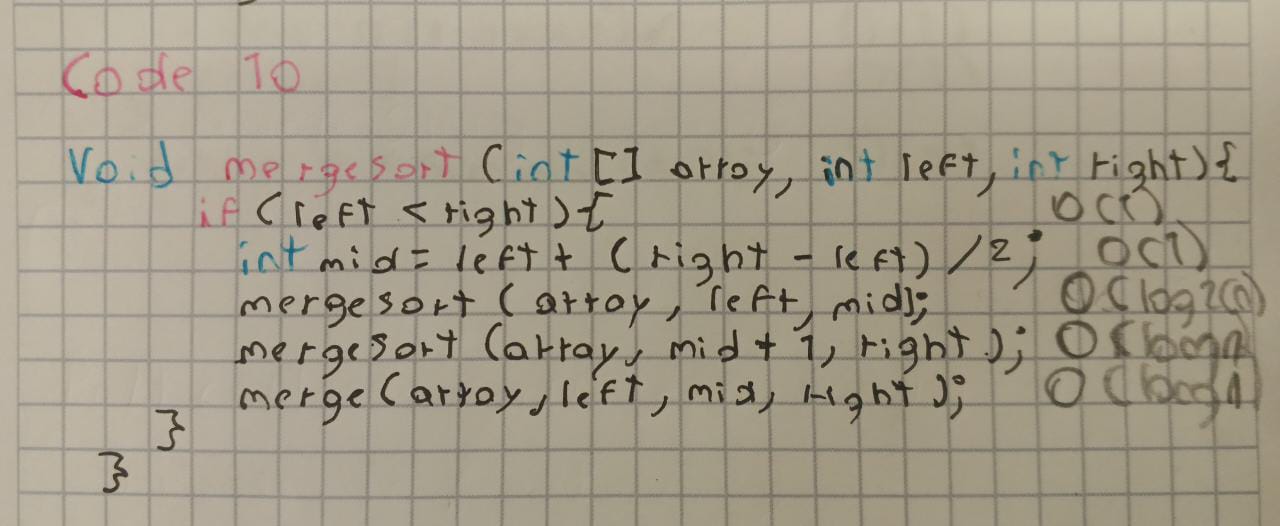 Code 10
Void mergesort (int[] array, int left, int right){
if (left < right){ O(1)
int mid = left + (right - left) /2; O(1)
mergesort (array, left, mid); O(log2(n)
mergesort (array, mid + 1, right); O(
merge(array, left, mid, right); O(
}
}